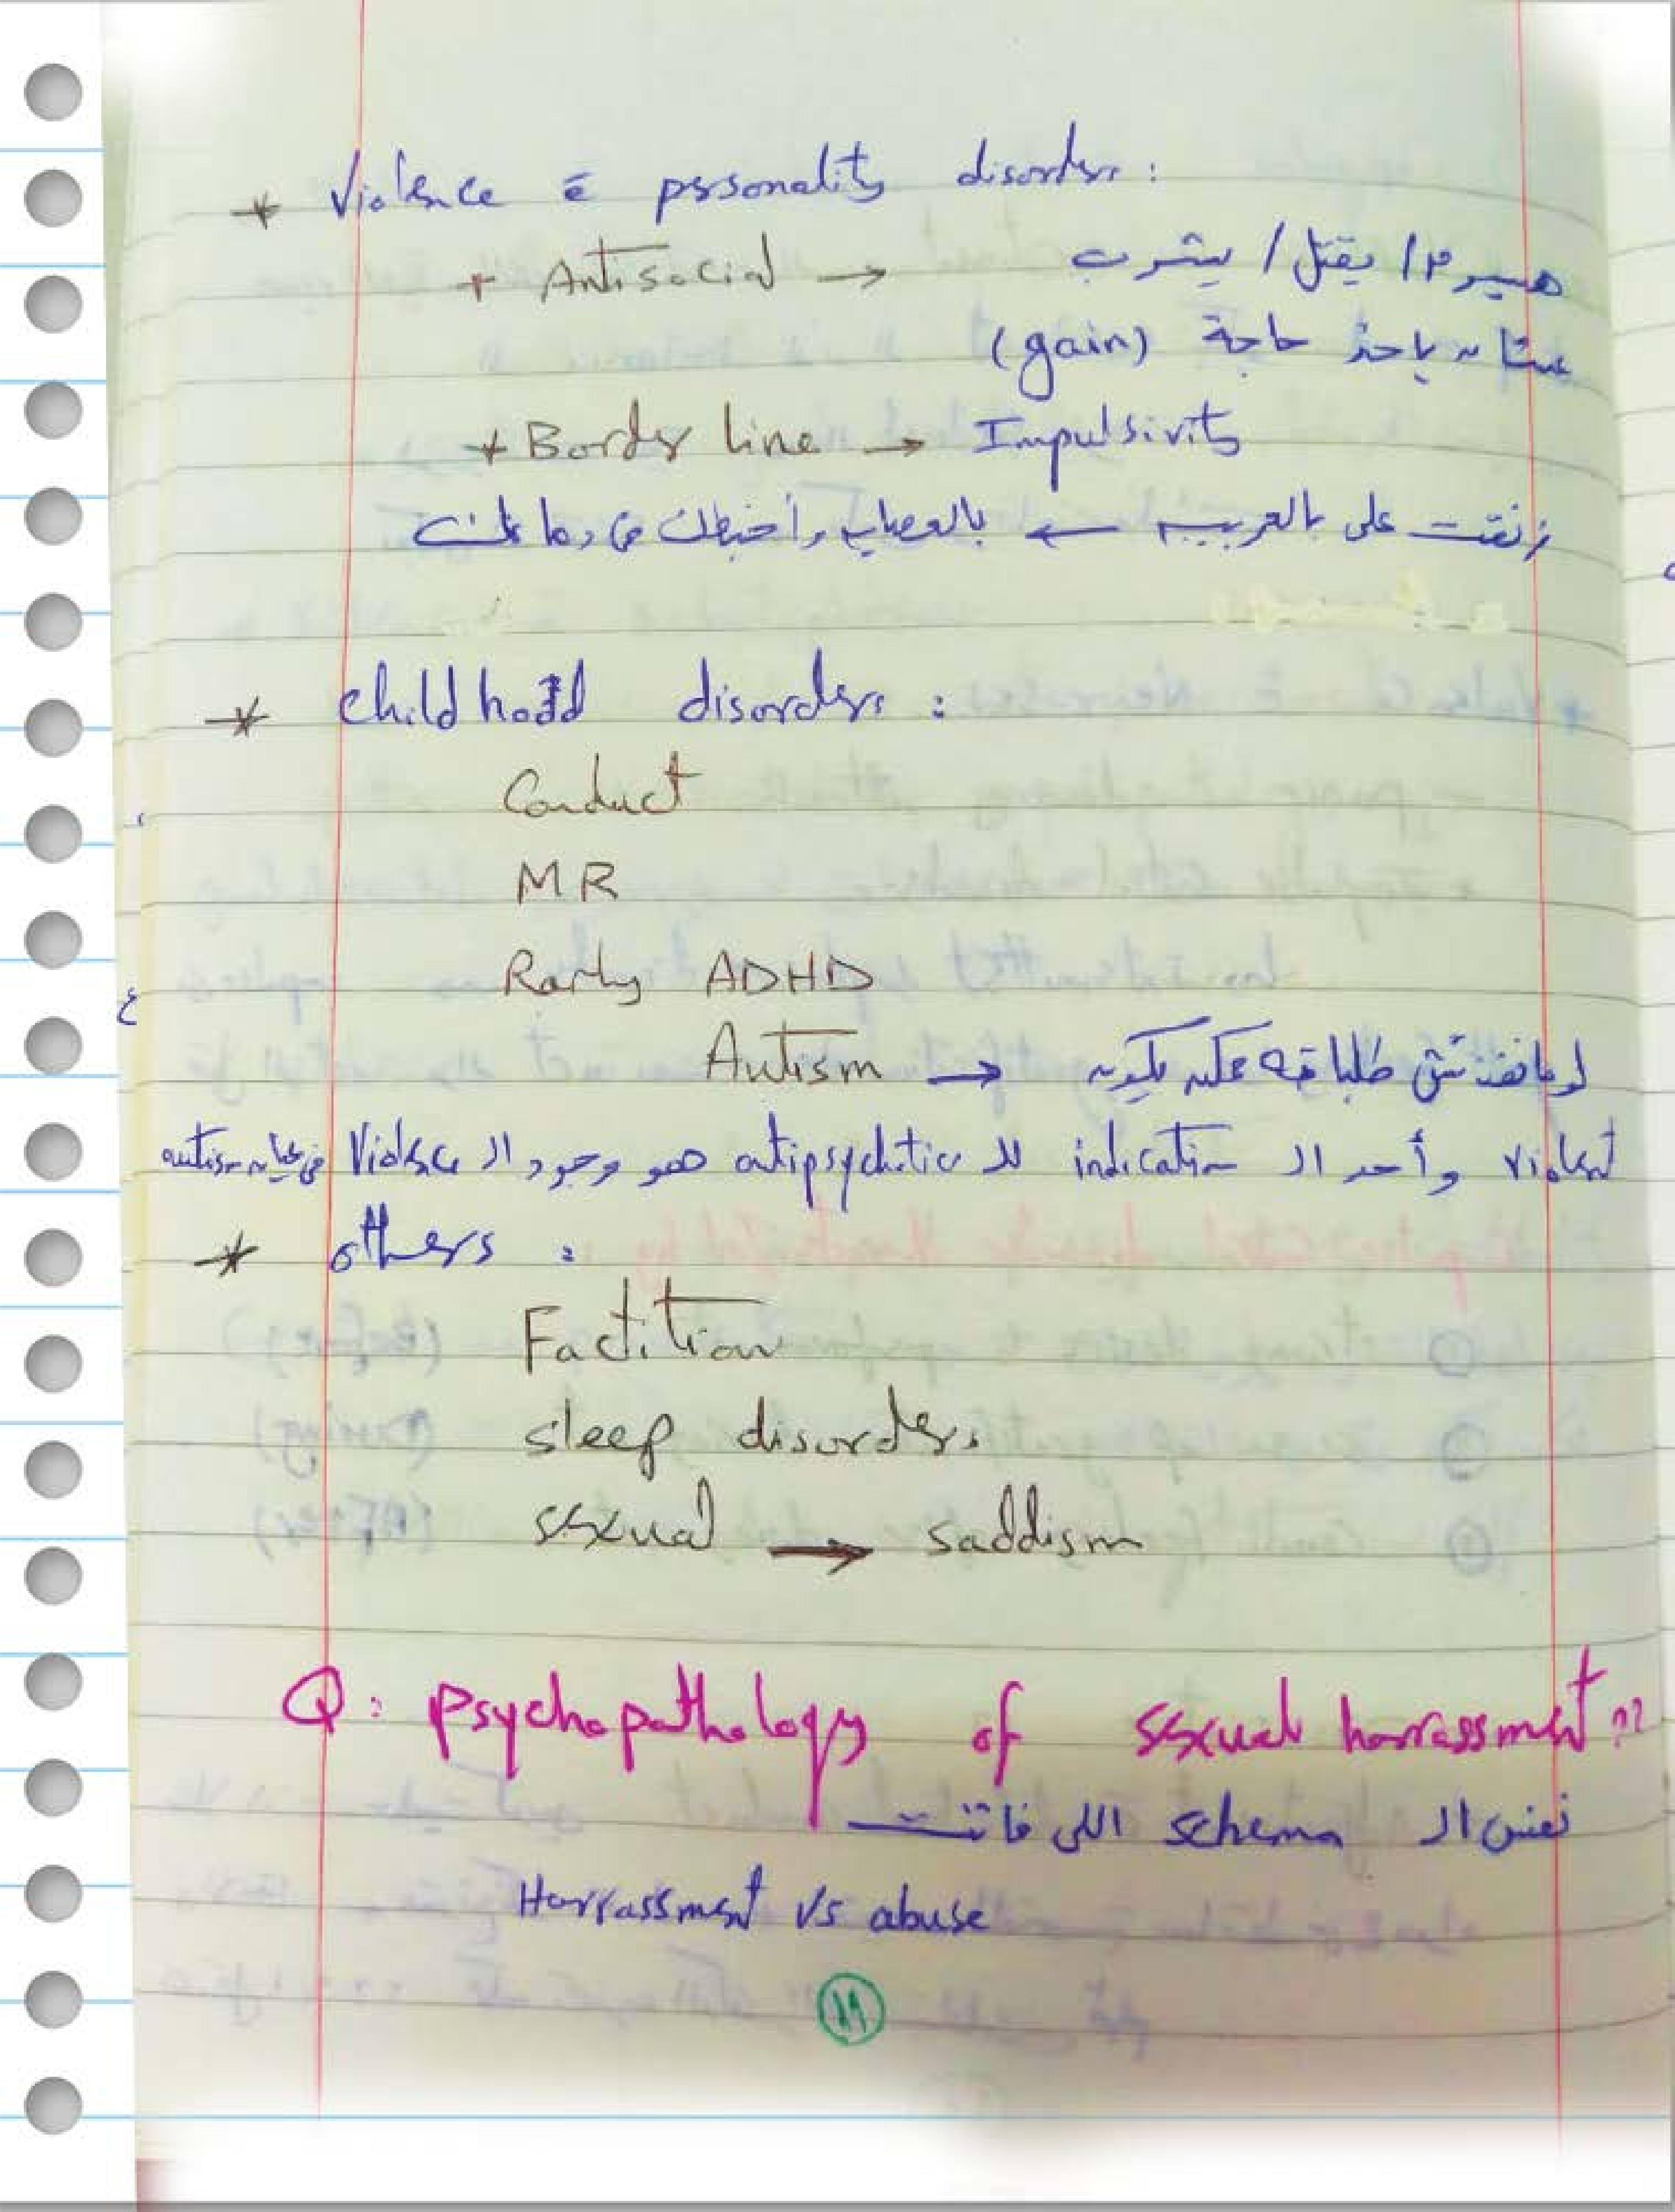 * Violence c̄ personality disorders :
+ Antisocial → / يقتل / يشرب
عشان ياخذ حاجة (gain)
+ Border line → Impulsivity
زنقت على بالعربيه ← بالعصايه وأخبطك في دماغك
* Childhood disorders :
Conduct
MR
Rarly ADHD
Autism → لو ما نفذتش طلباته ممكن يكون
violent وأحد الـ indication للـ antipsychotic هو وجود الـ Violence في عيان autism
* others :
Factitiou
sleep disorders.
sexual → saddism
Q: psychopathology of sexual harrassment ??
نفس الـ schema اللى فاتت
Harrassment vs abuse